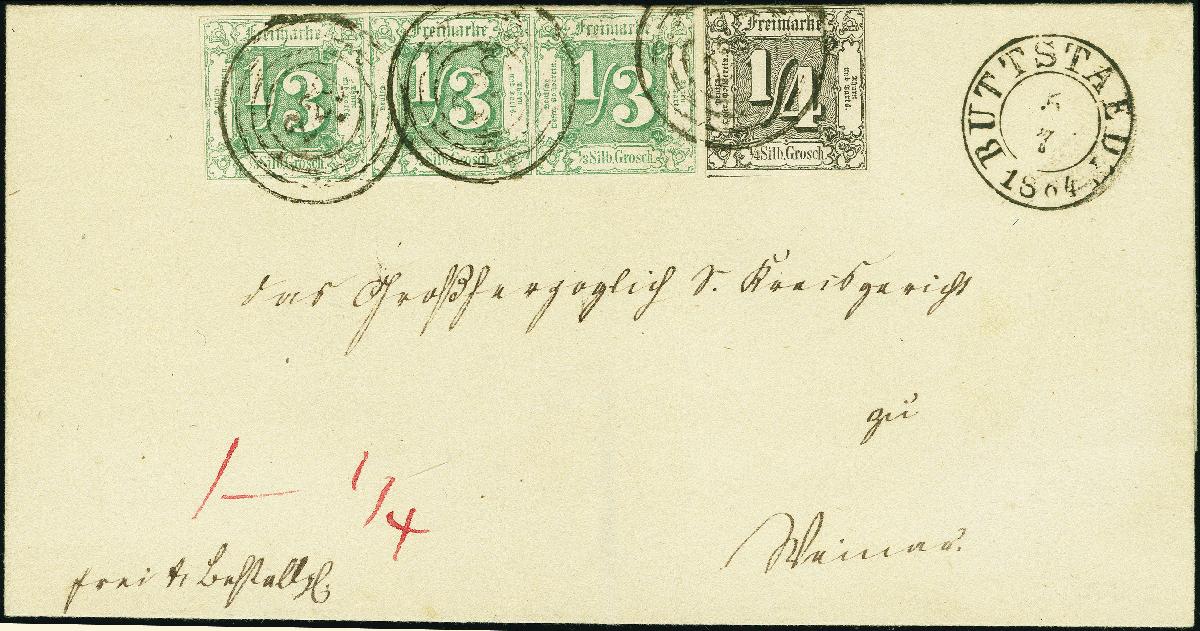 Freimarke Freimarke Freimarke Freimarke
1/3 1/3 1/3 1/4
1/3 Silb. Grosch. 1/3 Silb. Grosch. 1/3 Silb. Grosch. 1/4 Silb. Grosch.
BUTTSTAEDT
5
7
1864
das Großherzoglich S. Kreisgericht
zu
Weimar.
1 — 1/4
frei